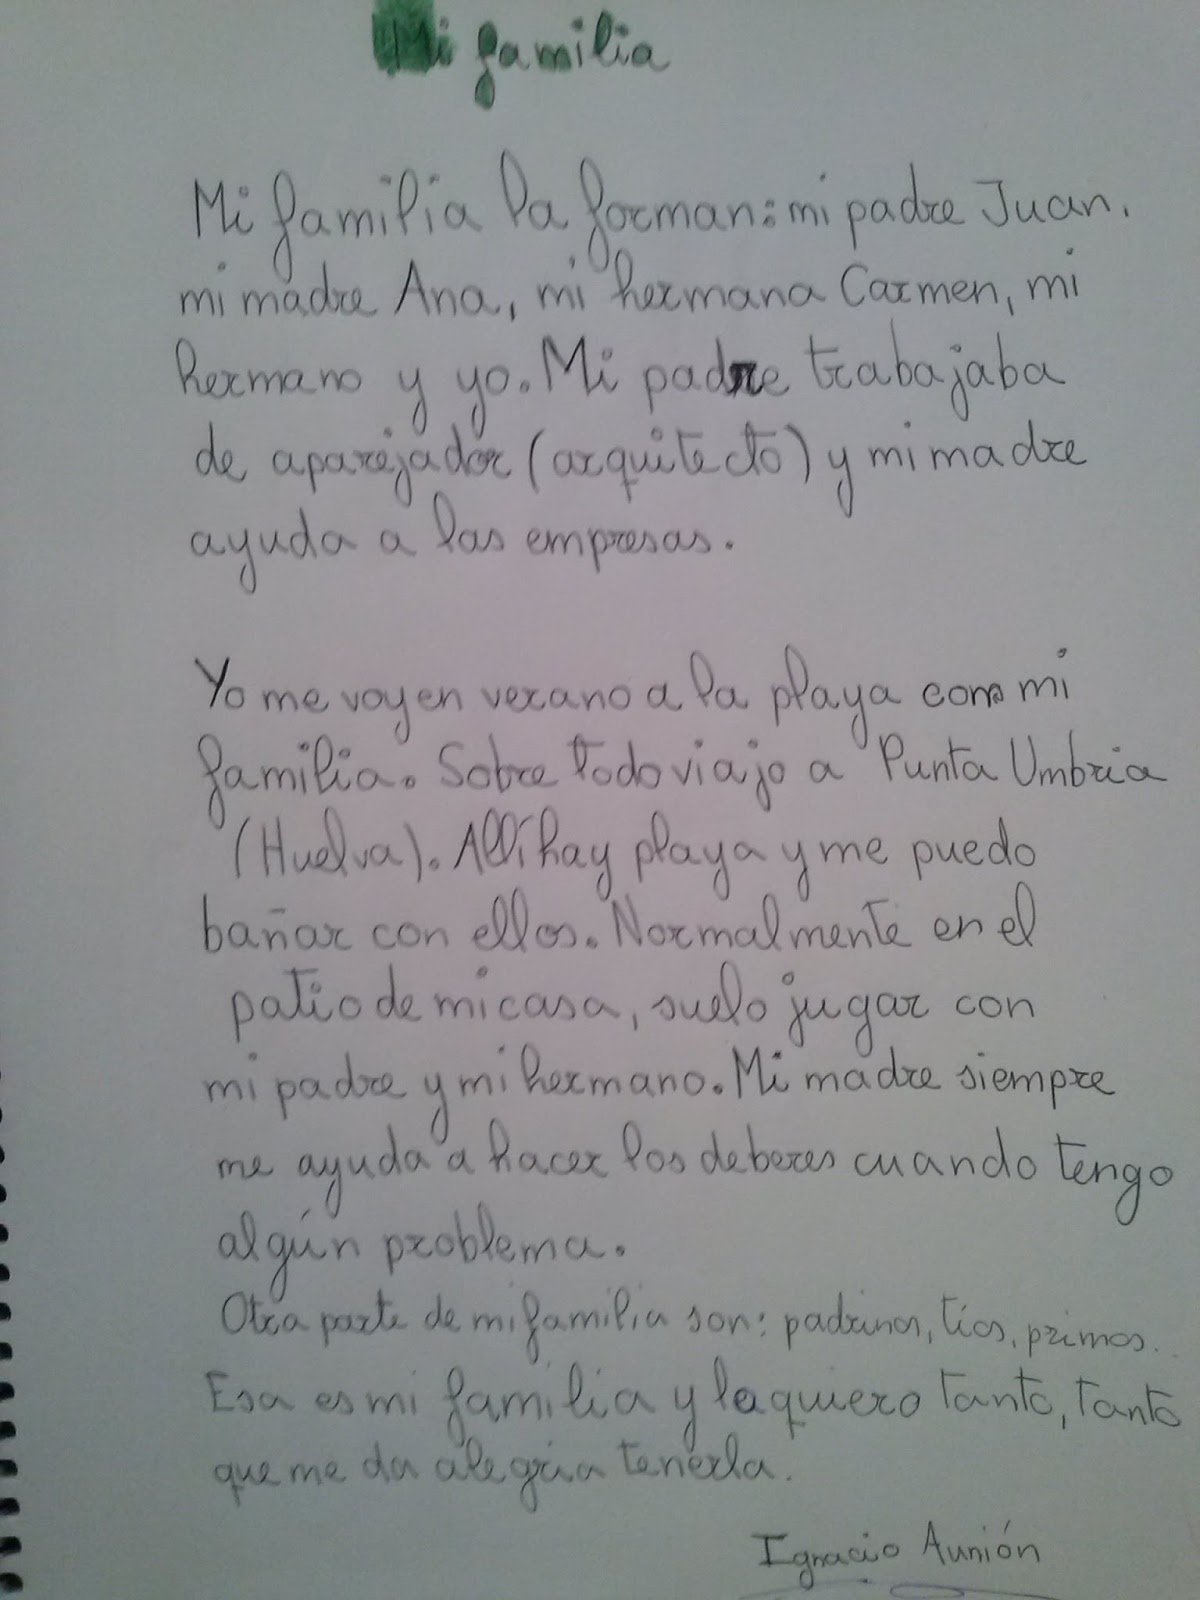 Mi familia
Mi familia la forman: mi padre Juan.
mi madre Ana, mi hermana Carmen, mi
hermano y yo. Mi padre trabajaba
de aparejador (arquitecto) y mi madre
ayuda a las empresas.
Yo me voy en verano a la playa con mi
familia. Sobre todo viajo a Punta Umbria
(Huelva). Allí hay playa y me puedo
bañar con ellos. Normalmente en el
patio de mi casa, suelo jugar con
mi padre y mi hermano. Mi madre siempre
me ayuda a hacer los deberes cuando tengo
algún problema.
Otra parte de mi familia son: padrinos, tíos, primos..
Esa es mi familia y la quiero tanto, tanto
que me da alegria tenerla.
Ignacio Aunión